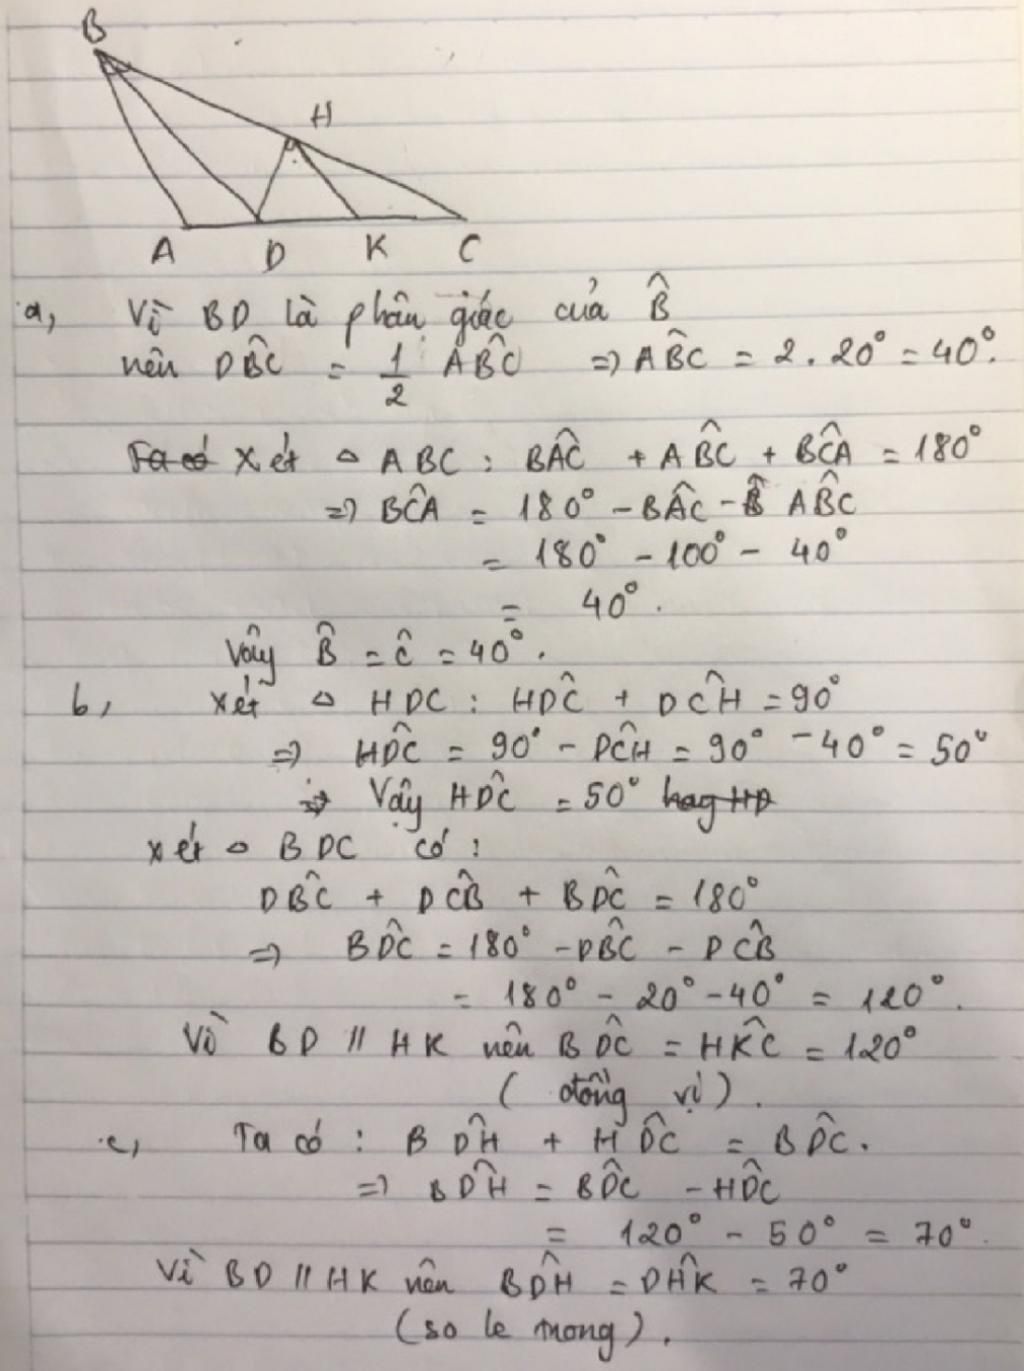 B
H
A D K C
a, Vì BD là phân giác của B̂
nên DB̂C = 1/2 AB̂C => AB̂C = 2. 20° = 40°.
Ta có Xét △ ABC : BÂC + AB̂C + BĈA = 180°
=> BĈA = 180° - BÂC - B̂ AB̂C
= 180° - 100° - 40°
= 40°.
Vậy B̂ = Ĉ = 40°.
b, xét △ HDC : HD̂C + DĈH = 90°
=> HD̂C = 90° - DĈH = 90° - 40° = 50°
=> Vậy HD̂C = 50° hay HD
xét △ BDC có :
DB̂C + DĈB + BD̂C = 180°
=> BD̂C = 180° - DB̂C - DĈB
= 180° - 20° - 40° = 120°.
Vì BD // HK nên BD̂C = HK̂C = 120°
(đồng vị).
c, Ta có : BD̂H + HD̂C = BD̂C.
=> BD̂H = BD̂C - HD̂C
= 120° - 50° = 70°.
Vì BD // HK nên BD̂H = DĤK = 70°
(so le trong).